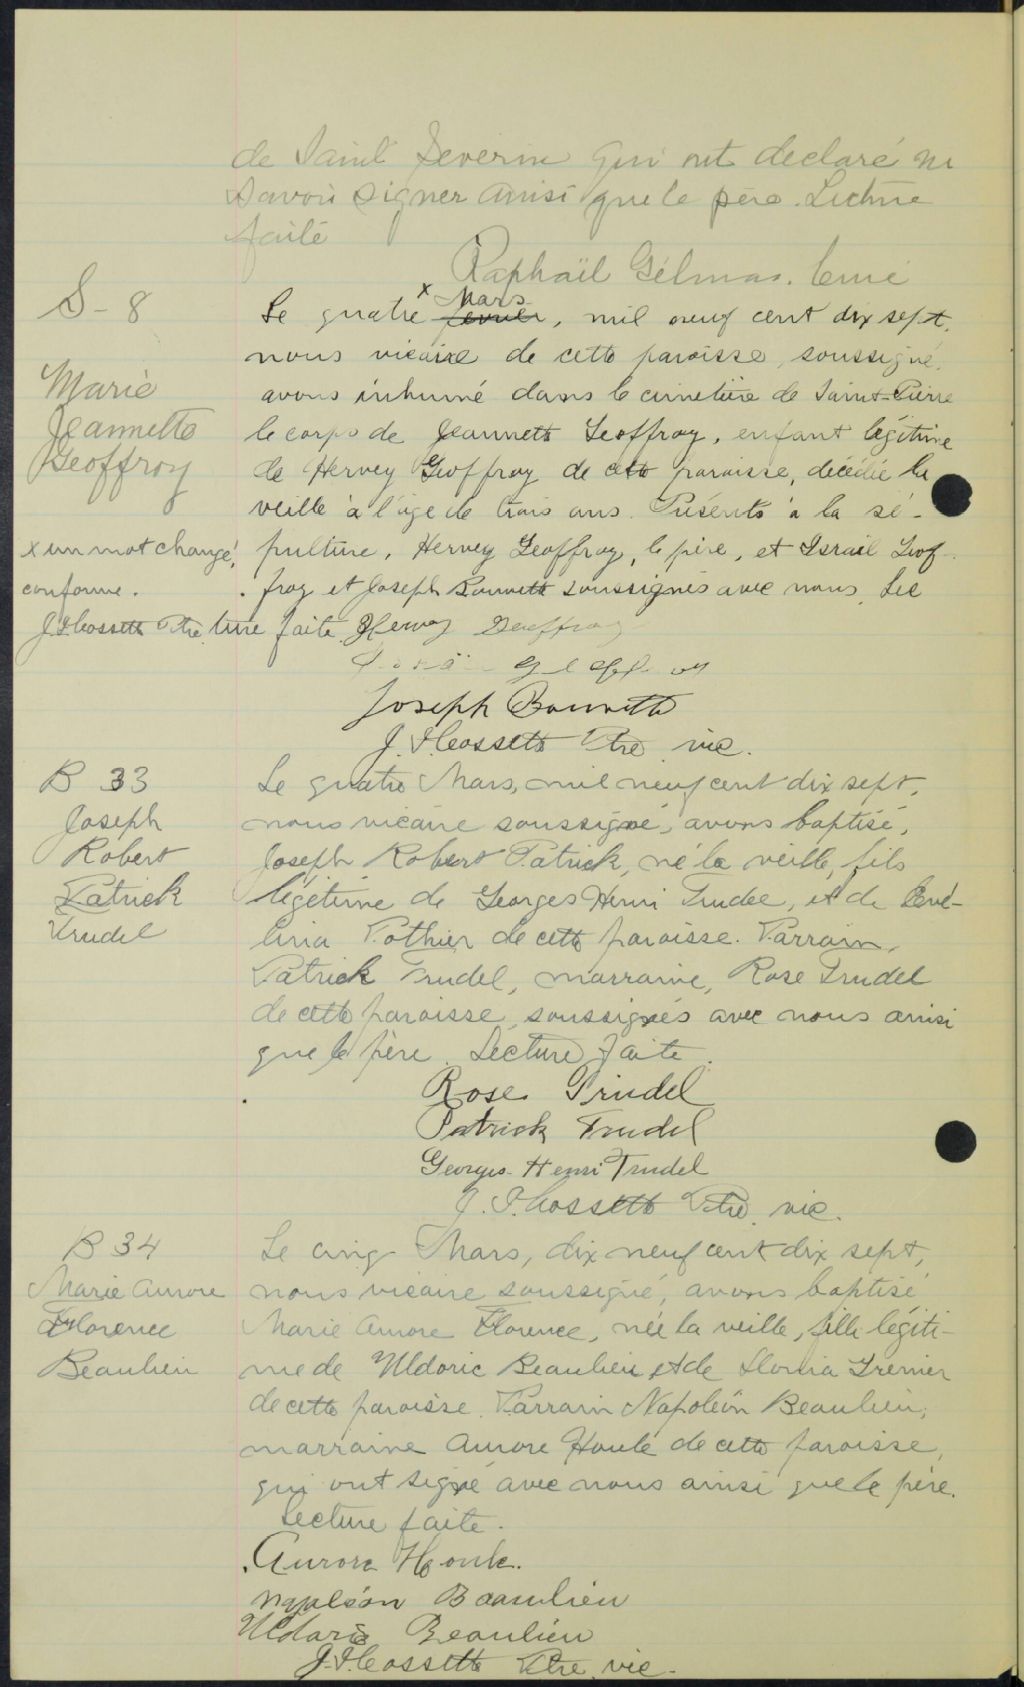 de Saint Severin qui ont declaré ne
savoir signer ainsi que le père. Lecture
faite
Raphaël Gélinas. Curé
S - 8
Marie
Jeannette
Geoffroy
x un mot changé,
conforme.
J. Cossette Ptre
Le quatre x Mars fevrier, mil neuf cent dix sept,
nous vicaire de cette paroisse, soussigné,
avons inhumé dans le cimetière de Saint-Pierre
le corps de Jeannette Geoffroy, enfant légitime
de Hervey Geoffroy de cette paroisse, décédée la
veille à l'âge de trois ans. Présents à la sé-
pulture, Hervey Geoffroy, le père, et Israël Geof-
froy et Joseph Bonnette soussignés avec nous. Lec
ture faite Hervey Geoffroy
Geoffroy
Joseph Bonnette
J. Cossette Ptre vic.
B 33
Joseph
Robert
Patrick
Trudel
Le quatre Mars, mil neuf cent dix sept,
nous vicaire soussigné, avons baptisé,
Joseph Robert Patrick, né la veille, fils
légitime de Georges Henri Trudel, et de Evé-
lina Pothier de cette paroisse. Parrain,
Patrick Trudel, marraine, Rose Trudel
de cette paroisse, soussignés avec nous ainsi
que le père. Lecture faite.
Rose Trudel
Patrick Trudel
Georges-Henri Trudel
J. Cossette Ptre, vic.
B 34
Marie Aurore
Florence
Beaulieu
Le cinq Mars, dix neuf cent dix sept,
nous vicaire soussigné, avons baptisé
Marie Aurore Florence, née la veille, fille légiti-
me de Uldoric Beaulieu et de Grenier
de cette paroisse. Parrain Napoléon Beaulieu,
marraine Aurore Houle de cette paroisse,
qui ont signé avec nous ainsi que le père.
Lecture faite.
Aurore Houle.
Napoléon Beaulieu
Uldoric Beaulieu
J. Cossette Ptre, vic.